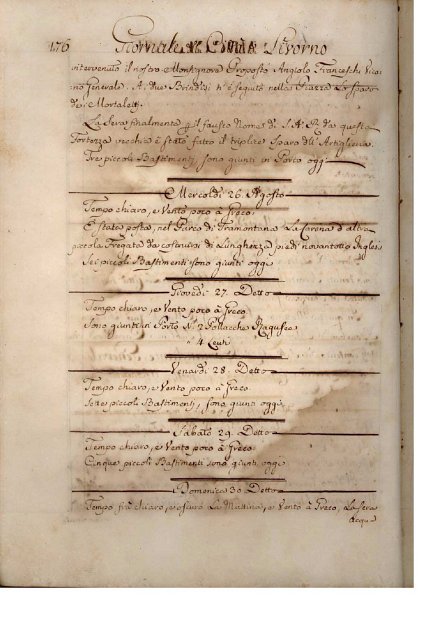 176 Giornale Livorno
intervenuto il nostro Monsignore Proposto Angiolo Franceschi Vica
rio Generale. A due Brindisi n'è seguito nella Piazza lo sparo
di Mortaletti.
La Sera finalmente p il fausto Nome di S. A. R. da questa
Fortezza vecchia è stato fatto il triplice Sparo dell'Artiglieria.
Tre piccoli Bastimenti, sono giunti in Porto oggi
Mercoldì 26. Agosto
Tempo chiaro, e Vento poco à Greco.
È stata posta nel Parco di Tramontana La Carena d'altra
piccola Fregata da costruirsi di Lunghezza piedi novantotto Inglesi
Sei piccoli Bastimenti sono giunti oggi
Giovedì 27. Detto
Tempo chiaro, e Vento poco à Greco
Sono giunti in Porto N.° 2 Pollacche Ragusee
" 4 Leuti
Venardì 28. Detto
Tempo chiaro, e Vento poco à Greco
Sette piccoli Bastimenti, sono giunti oggi
Sabato 29. Detto
Tempo chiaro, e Vento poco à Greco
Cinque piccoli Bastimenti sono giunti oggi
Domenica 30. Detto
Tempo frà chiaro, e oscuro La Mattina, e Vento à Greco, La Sera
acqu